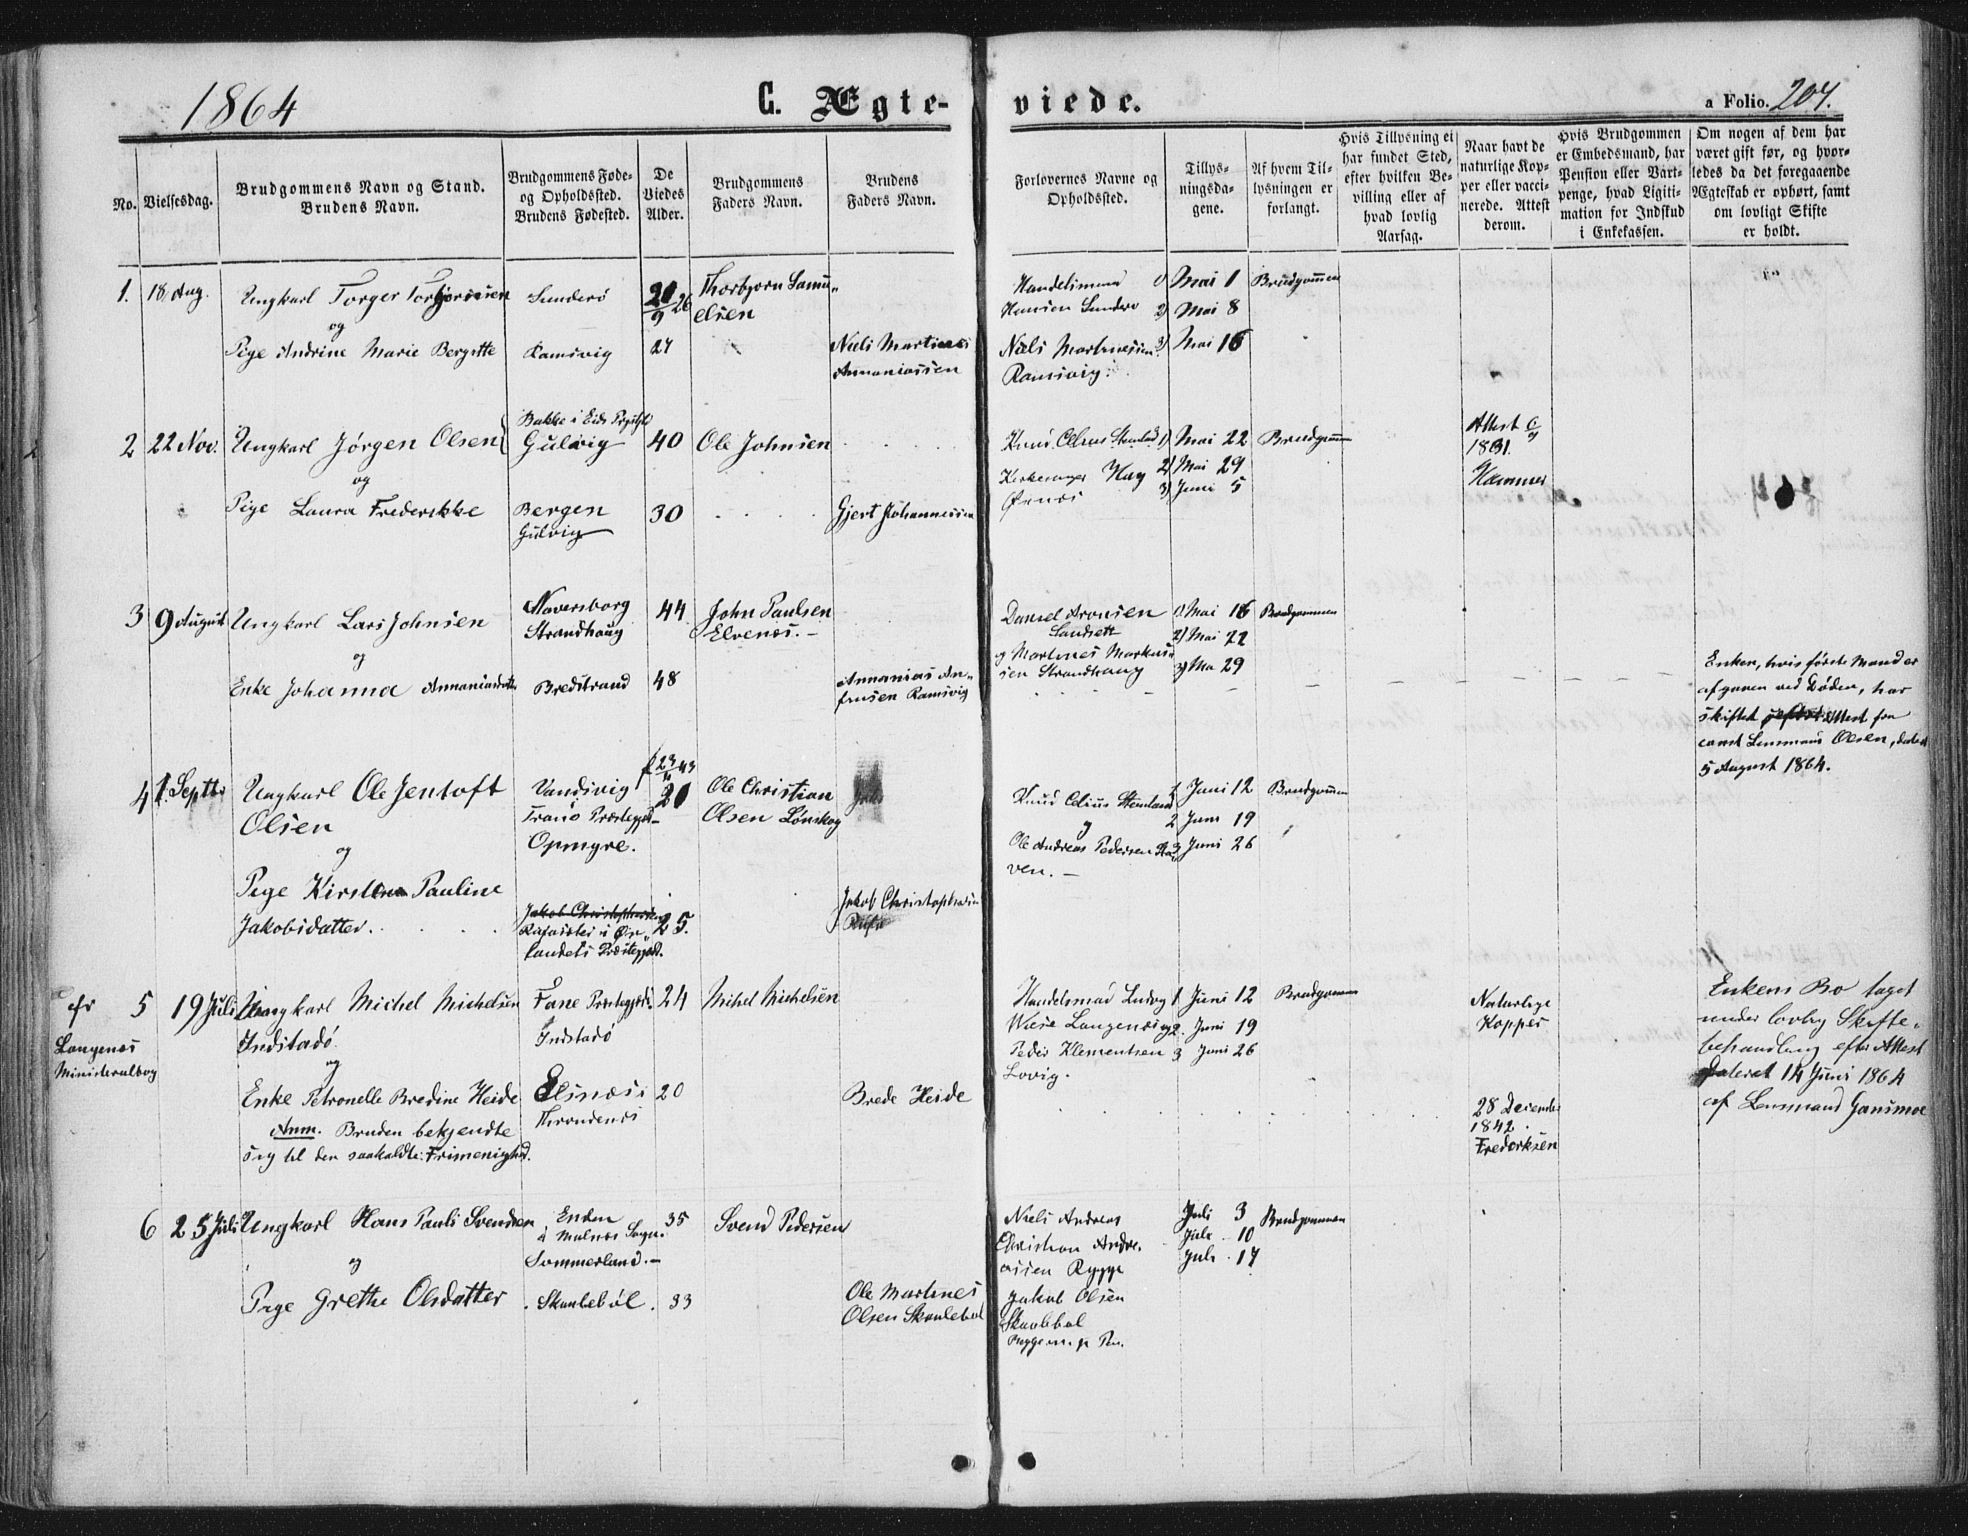 1864
C. Ægte-
viede.
a Folio. 207.
No.
Vielsesdag.
Brudgommens Navn og Stand.
Brudens Navn.
Brudgommens Føde-
og Opholdssted.
Brudens Fødested.
De
Viedes
Alder.
Brudgommens
Faders Navn.
Brudens
Faders Navn.
Forlovernes Navne og
Opholdssted.
Tillys-
ningsda-
gene.
Af hvem Til-
lysningen er
forlangt.
Hvis Tillysning ei
har fundet Sted,
efter hvilken Be-
villing eller af
hvad lovlig
Aarsag.
Naar havt de
naturlige Kop-
per eller vacci-
nerede. Attest
derom.
Hvis Brudgommen
er Embedsmand, har
Pension eller Vart-
penge, hvad Ligiti-
mation for Indskud
i Enkekassen.
Om nogen af dem har
været gift før, og hvor-
ledes da det foregaaende
Ægteskab er ophørt, samt
om lovligt Skifte
er holdt.
1. 18 Aug. Ungkarl Torger Sunderø 26 Thorbjorn Samu-
elsen
og
Pige Andrine Marie Bergitte Ramsvig 27 Niels Martines
Annaniassen
Hansen Sundero
Niels Martinessen
Ramsvig.
1) Mai 1 Brudgommen
2) Mai 8
3) Mai 16
2 22 Nov. Ungkarl Jørgen Olsen Bakke i Eids
Gulvig 40 Ole Johnsen
og
Pige Laura Frederikke Bergen 30 Gjert Johannessen
Gulvig
Knud Celius
Kirkesanger Hay
Øxnes
1) Mai 22 Brudgommen
2) Mai 29
3) Juni 5
Attest
Hammer
3 9 August Ungkarl Lars Johnsen
Strandhaug 44 John Paulsen
Elvenes.-
og
Enke Johanna Annaniasdatter Bredstrand 48 Annanias An-
Ramsvig
Daniel Aronsen
og Martines Markus-
sen Strandhaug
1) Mai 16 Brudgommen
2) Mai 22
3) Mai 29
Enken, hvis første Mand er
afgaaen ved Døden, har
skiftet Attest fra
const Lensmand Olsen, dateret
5 August 1864.
4 1. Septbr Ungkarl Ole Jentoft
Olsen
Vandsvig
Tranø Præstegjeld-
Opmyre.
20 Ole Christian
Olsen Lønskog
og
Pige Kirsten Pauline
Jakobsdatter.
Jakob Christophersen
25. Jakob Christophersen
Præstegjæld.
Knud Celius
og
Ole Andreas Pedersen
ven.-
1 Juni 12 Brudgommen
2 Juni 19
3 Juni 26
Langenes
Ministerialbog
5 19 Juli Ungkarl Michel Michelsen
Indstadø.
og
Præstegjeld
Indstadø
24 Mihel Michelsen
Enke Petronelle Bredine Heide
Elsnæs i
Throndenes
20 Brede Heide
Anm. Bruden bekjendte
sig til den saakaldte Frimenighed.
Handelsmand Ludvig
Wiese Langenes og
Peder Klementsen
Lovig.
1 Juni 12 Brudgommen
2. Juni 19
3 Juni 26
Naturlige
Kopper
28 December
1842.
Fredriksen
Enkens Bo taget
under lovlig Skifte-
behandling efter Attest
dateret 14 Juni 1864
af Lensmand Gansmoe
6 25 Juli Ungkarl Hans Pauli Svendsen
Enden
i Malnes Sogn.
Sommerland.-
35 Svend Pedersen
og
Pige Grethe Olsdatter Skaulebøl. 33 Ole Martines
Olsen Skaulebøl
Niels Andreas
Christian Andre-
assen Rygge
Jakob Olsen
Skaulebøl
Juli 3 Brudgommen
Juli 10
Juli 17